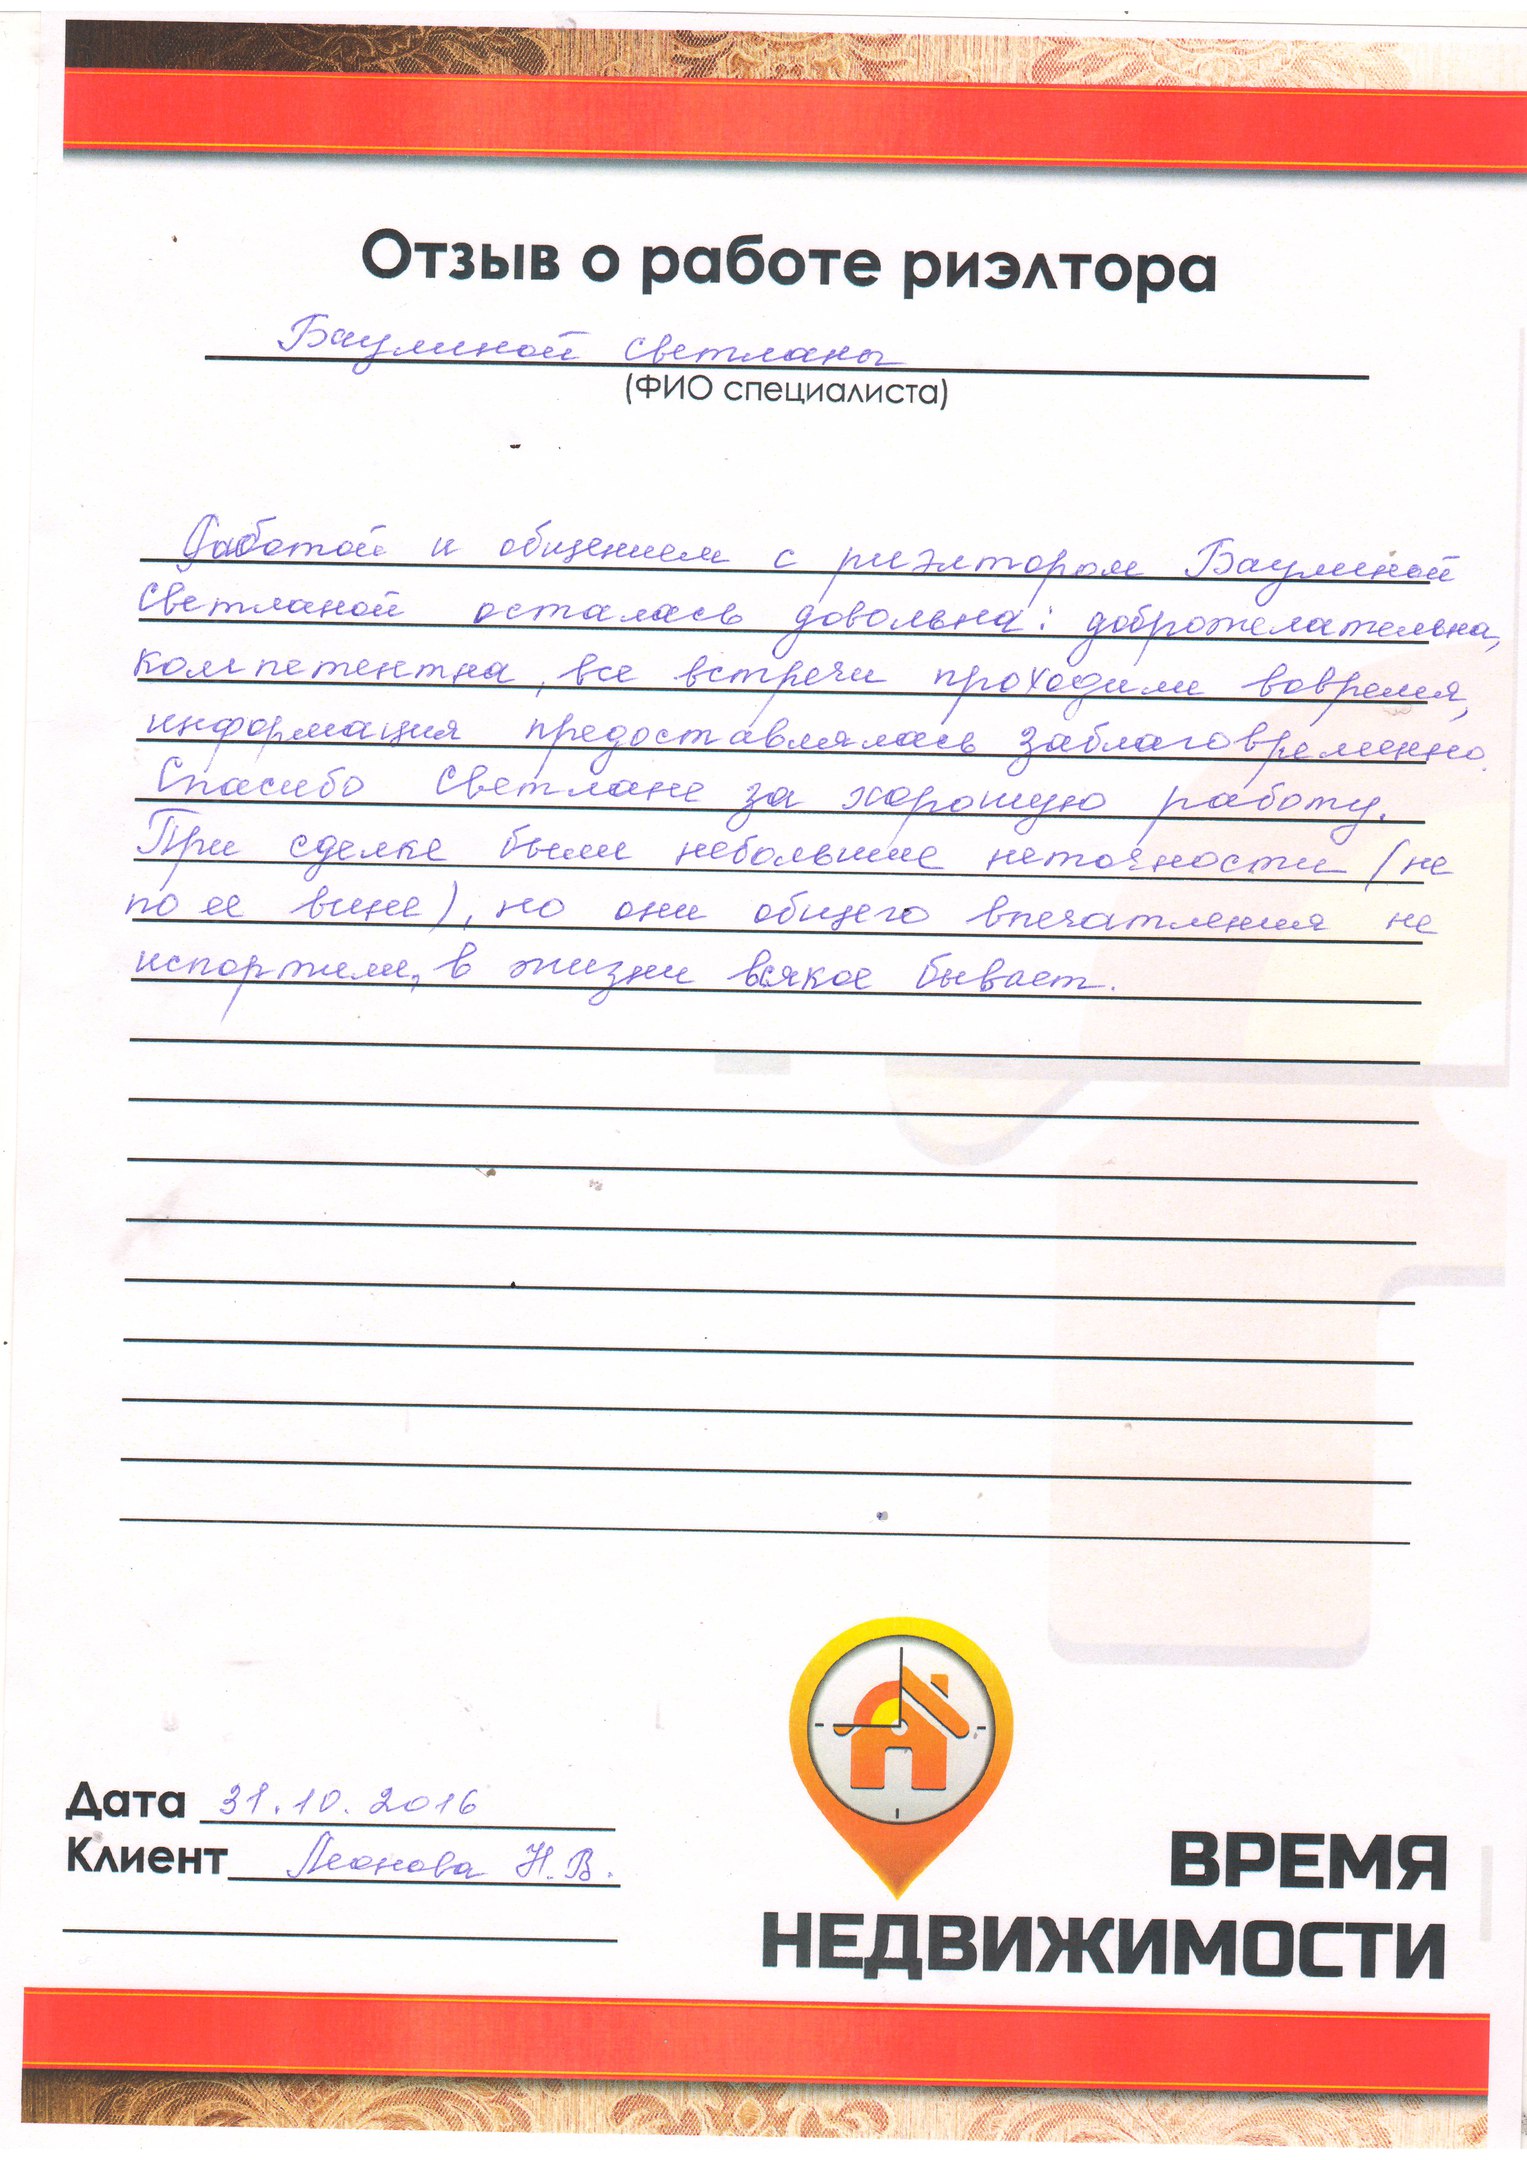 Отзыв о работе риэлтора
Баулиной Светланы
(ФИО специалиста)
Работой и общением с риэлтором Баулиной
Светланой осталась довольна: доброжелательна,
компетентна, все встречи проходили вовремя,
информация предоставлялась заблаговременно.
Спасибо Светлане за хорошую работу.
При сделке были небольшие неточности (не
по ее вине), но они общего впечатления не
испортили, в жизни всякое бывает.
Дата 31.10.2016
Клиент Леонова Н.В.
ВРЕМЯ
НЕДВИЖИМОСТИ